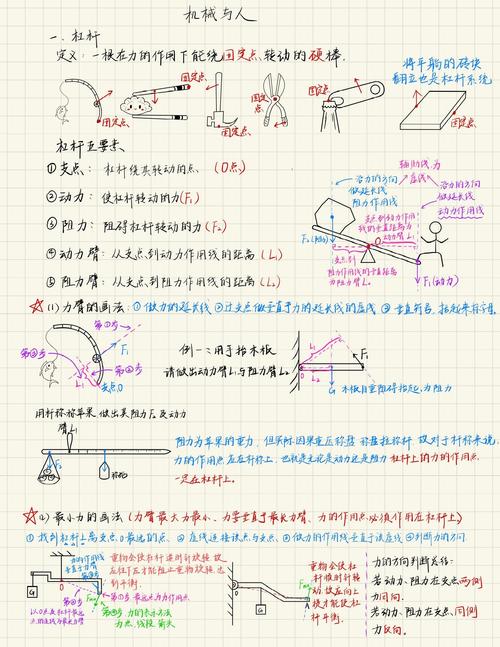 机械与人
一、杠杆
定义：一根在力的作用下能绕固定点转动的硬棒.
将平躺的砖块
翻立也是杠杆系统
固定点.
固定点.
固定点
固定点
固定点.
固定点.
杠杆五要素、
①支点： 杠杆绕其转动的点、(O点)
②动力：使杠杆转动的力(F₁)
③阻力：阻碍杠杆转动的力(F₂)
④动力臂：从支点到动力作用线的距离(L₁)
⑤阻力臂：从支点到阻力作用线的距离(L₂)
辅助线为
虚线
沿力的方向
做延长线
阻力作用线
沿力的方向
做延长线
动力作用线
支点到动力作用
线的垂直距离为
动力臂L₁
F₂(阻力)
支点到
阻力作用线的
垂直距离为
阻力臂L₂
F₁(动力)
☆(1) 力臂的画法：①做力的延长线 ②过支点做垂直于力的延长线的虚线 ③垂直符号、括起来标字母.
第①步
第②步
第③步
F₁
L₁
支点O
例一：用手抬木板
请做出动力臂L₁与阻力臂L₂
L₁
L₂
F₁
O
G 木板自重阻碍抬起，为阻力
用杆称称苹果 做出其阻力F₂及动力
臂L₁
L₁
F₂
阻力为苹果的重力，但实际因果重压称盘 称盘拉称杆，故对于杆称来说，
力的作用点应在杆称上，也就是无论是动力还是阻力 杠杆上的力的作用点
一定在杠杆上。
☆(2) 最小力的画法（力臂最大力最小、力要垂直于最长力臂、力的作用点必须作用在杠杆上）
①找到杠杆上离支点O最远的点、②虚线连接该点与支点、③做力的作用线垂直于该虚线 ④判断力的方向.
力的作用线
垂直于力臂
G
第②步
第①步最远点为力作用点
第④步 力的表示方法
力点、线段、箭头
以O点至杠杆最远
点的连线为最大力臂
重物会使杠杆逆时针旋转，故
在往下压才能阻止重物旋转，达
到平衡.
重物会使
杠杆顺时针转
动，故在向上
提才能使杠
杆平衡.
G
力的方向判断总结：
若动力、阻力在支点两侧
力同向.
若动力、阻力在支点同侧
力反向.